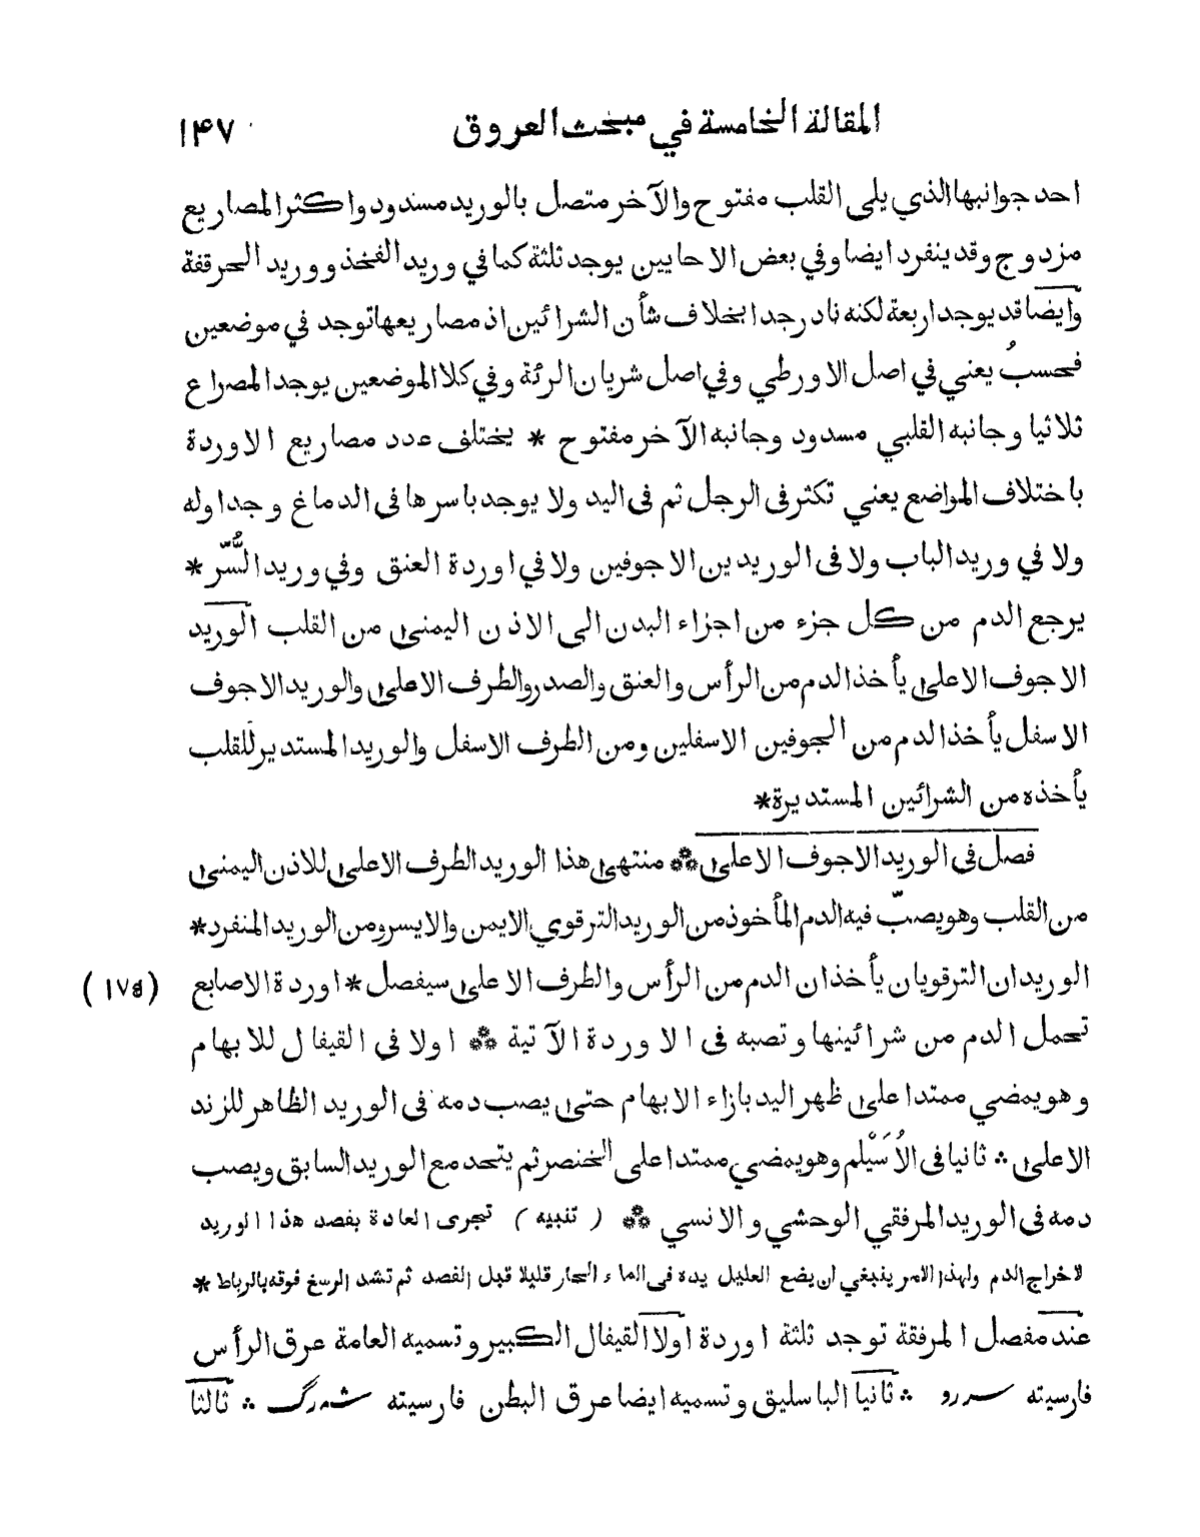 المقالة الخامسة في مبحث العروق ١۴٧
احد جوانبها الذي يلي القلب مفتوح والآخر متصل بالوريد مسدود واكثر المصاريع
مزدوج وقد ينفرد ايضا وفي بعض الاحايين يوجد ثلثة كما في وريد الفخذ ووريد الحرقفة
وايضا قد يوجد اربعة لكنه نادر جدا بخلاف شأن الشرائين اذ مصاريعها توجد في موضعين
فحسبُ يعني في اصل الاورطي وفي اصل شريان الرئة وفي كلا الموضعين يوجد المصراع
ثلاثيا وجانبه القلبي مسدود وجانبه الآخر مفتوح * يختلف عدد مصاريع الاوردة
باختلاف المواضع يعني تكثر فى الرجل ثم فى اليد ولا يوجد باسرها فى الدماغ وجداوله
ولا في وريد الباب ولا فى الوريدين الاجوفين ولا في اوردة العنق وفي وريد السُّرّ *
يرجع الدم من كل جزء من اجزاء البدن الى الاذن اليمنى من القلب الوريد
الاجوف الاعلى يأخذ الدم من الرأس والعنق والصدر والطرف الاعلى والوريد الاجوف
الاسفل يأخذ الدم من الجوفين الاسفلين ومن الطرف الاسفل والوريد المستدير للقلب
يأخذه من الشرائين المستديرة *
فصل فى الوريد الاجوف الاعلى ** منتهى هذا الوريد الطرف الاعلى للاذن اليمنى
من القلب وهو يصبّ فيه الدم المأخوذ من الوريد الترقوي الايمن والايسر ومن الوريد المنفرد *
الوريدان الترقويان يأخذان الدم من الرأس والطرف الاعلى سيفصل * اوردة الاصابع (١٧۵)
تحمل الدم من شرائينها وتصبه فى الاوردة الآتية ** اولا في القيفال للابهام
وهو يمضي ممتدا على ظهر اليد بازاء الابهام حتى يصب دمه فى الوريد الظاهر للزند
الاعلى ∴ ثانيا فى الاُسَيْلم وهو يمضي ممتدا على الخنصر ثم يتحد مع الوريد السابق ويصب
دمه فى الوريد المرفقي الوحشي والانسي ** ( تنبيه ) تجرى العادة بفصد هذا الوريد
لاخراج الدم ولهذا الامر ينبغي ان يضع العليل يده فى الماء الحار قليلا قبل الفصد ثم تشد الرسغ فوقه بالرباط *
عند مفصل المرفقة توجد ثلثة اوردة اولا القيفال الكبير وتسميه العامة عرق الرأس
فارسيته سررو ∴ ثانيا الباسليق وتسميه ايضا عرق البطن فارسيته شهرگ ∴ ثالثا